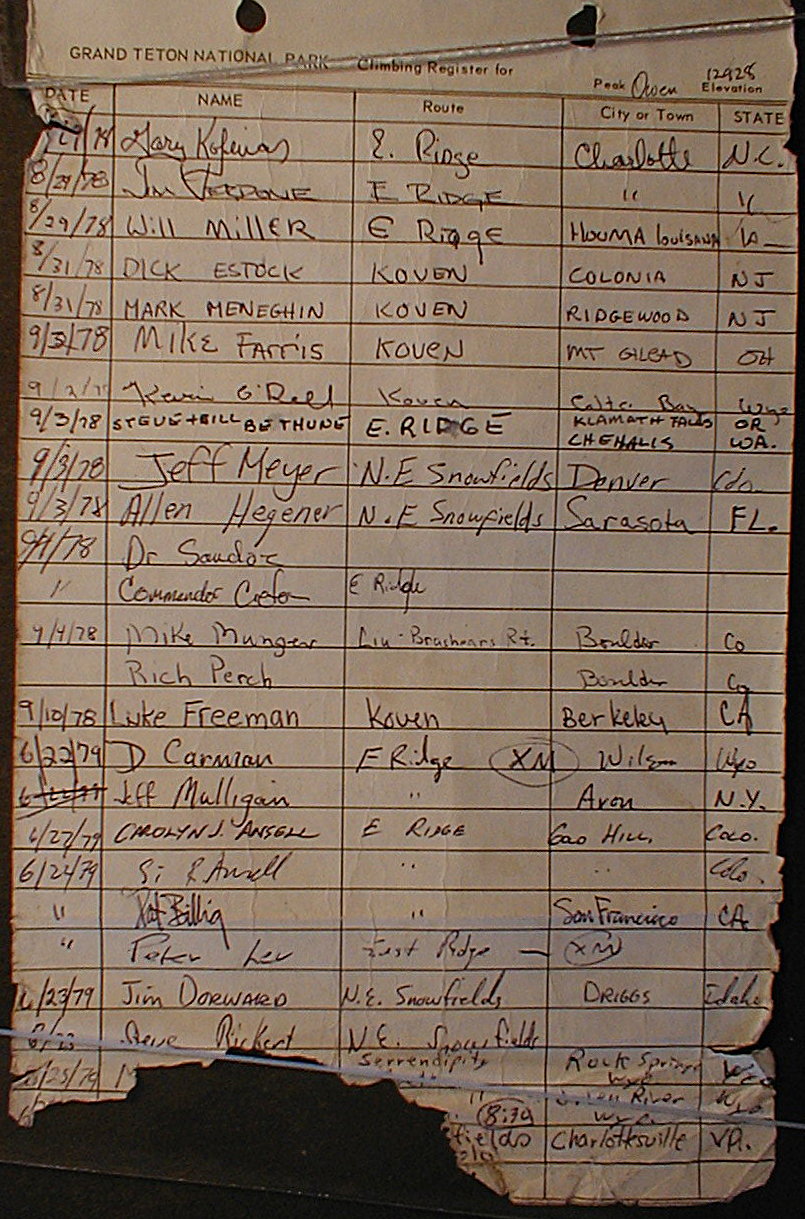 GRAND TETON NATIONAL PARK Climbing Register for Peak Owen 12928 Elevation
DATE NAME Route City or Town STATE
/78 Gary E. Ridge Charlotte N.C.
8/29/78 Jim E RIDGE " "
8/29/78 Will Miller E Ridge HOUMA Louisiana LA
8/31/78 DICK ESTOCK KOVEN COLONIA NJ
8/31/78 MARK MENEGHIN KOVEN RIDGEWOOD NJ
9/2/78 MIKE FARRIS KOVEN MT GILEAD OH
9/2/78 Kevin O'Dell Koven Colter Bay Wyo
9/3/78 STEVE + BILL BETHUNE E. RIDGE KLAMATH FALLS OR
CHEHALIS WA.
9/3/78 Jeff Meyer N.E Snowfields Denver Colo.
9/3/78 Allen Hegener N.E Snowfields Sarasota FL.
9/4/78 Dr
" Commander E Ridge
9/4/78 Mike Munger Liu-Brashears Rt. Boulder Co
Rich Perch Boulder Co
9/10/78 Luke Freeman Koven Berkeley CA
6/22/79 D Carman E Ridge XM Wilson Wyo
Jeff Mulligan " Avon N.Y.
6/27/79 CAROLYN J. ANSELL E RIDGE HILL, COLO.
6/24/79 R Ansell " " Colo.
" Pat Billig " San Francisco CA
" Peter Lev East Ridge — XM
6/23/79 Jim DORWARD N.E. Snowfields DRIGGS Idaho
Steve Rickert N.E. Snowfields
/25/79 Serrendipity Rock Springs Wyo
" River Wyo
8:30
fields Charlottesville VA.